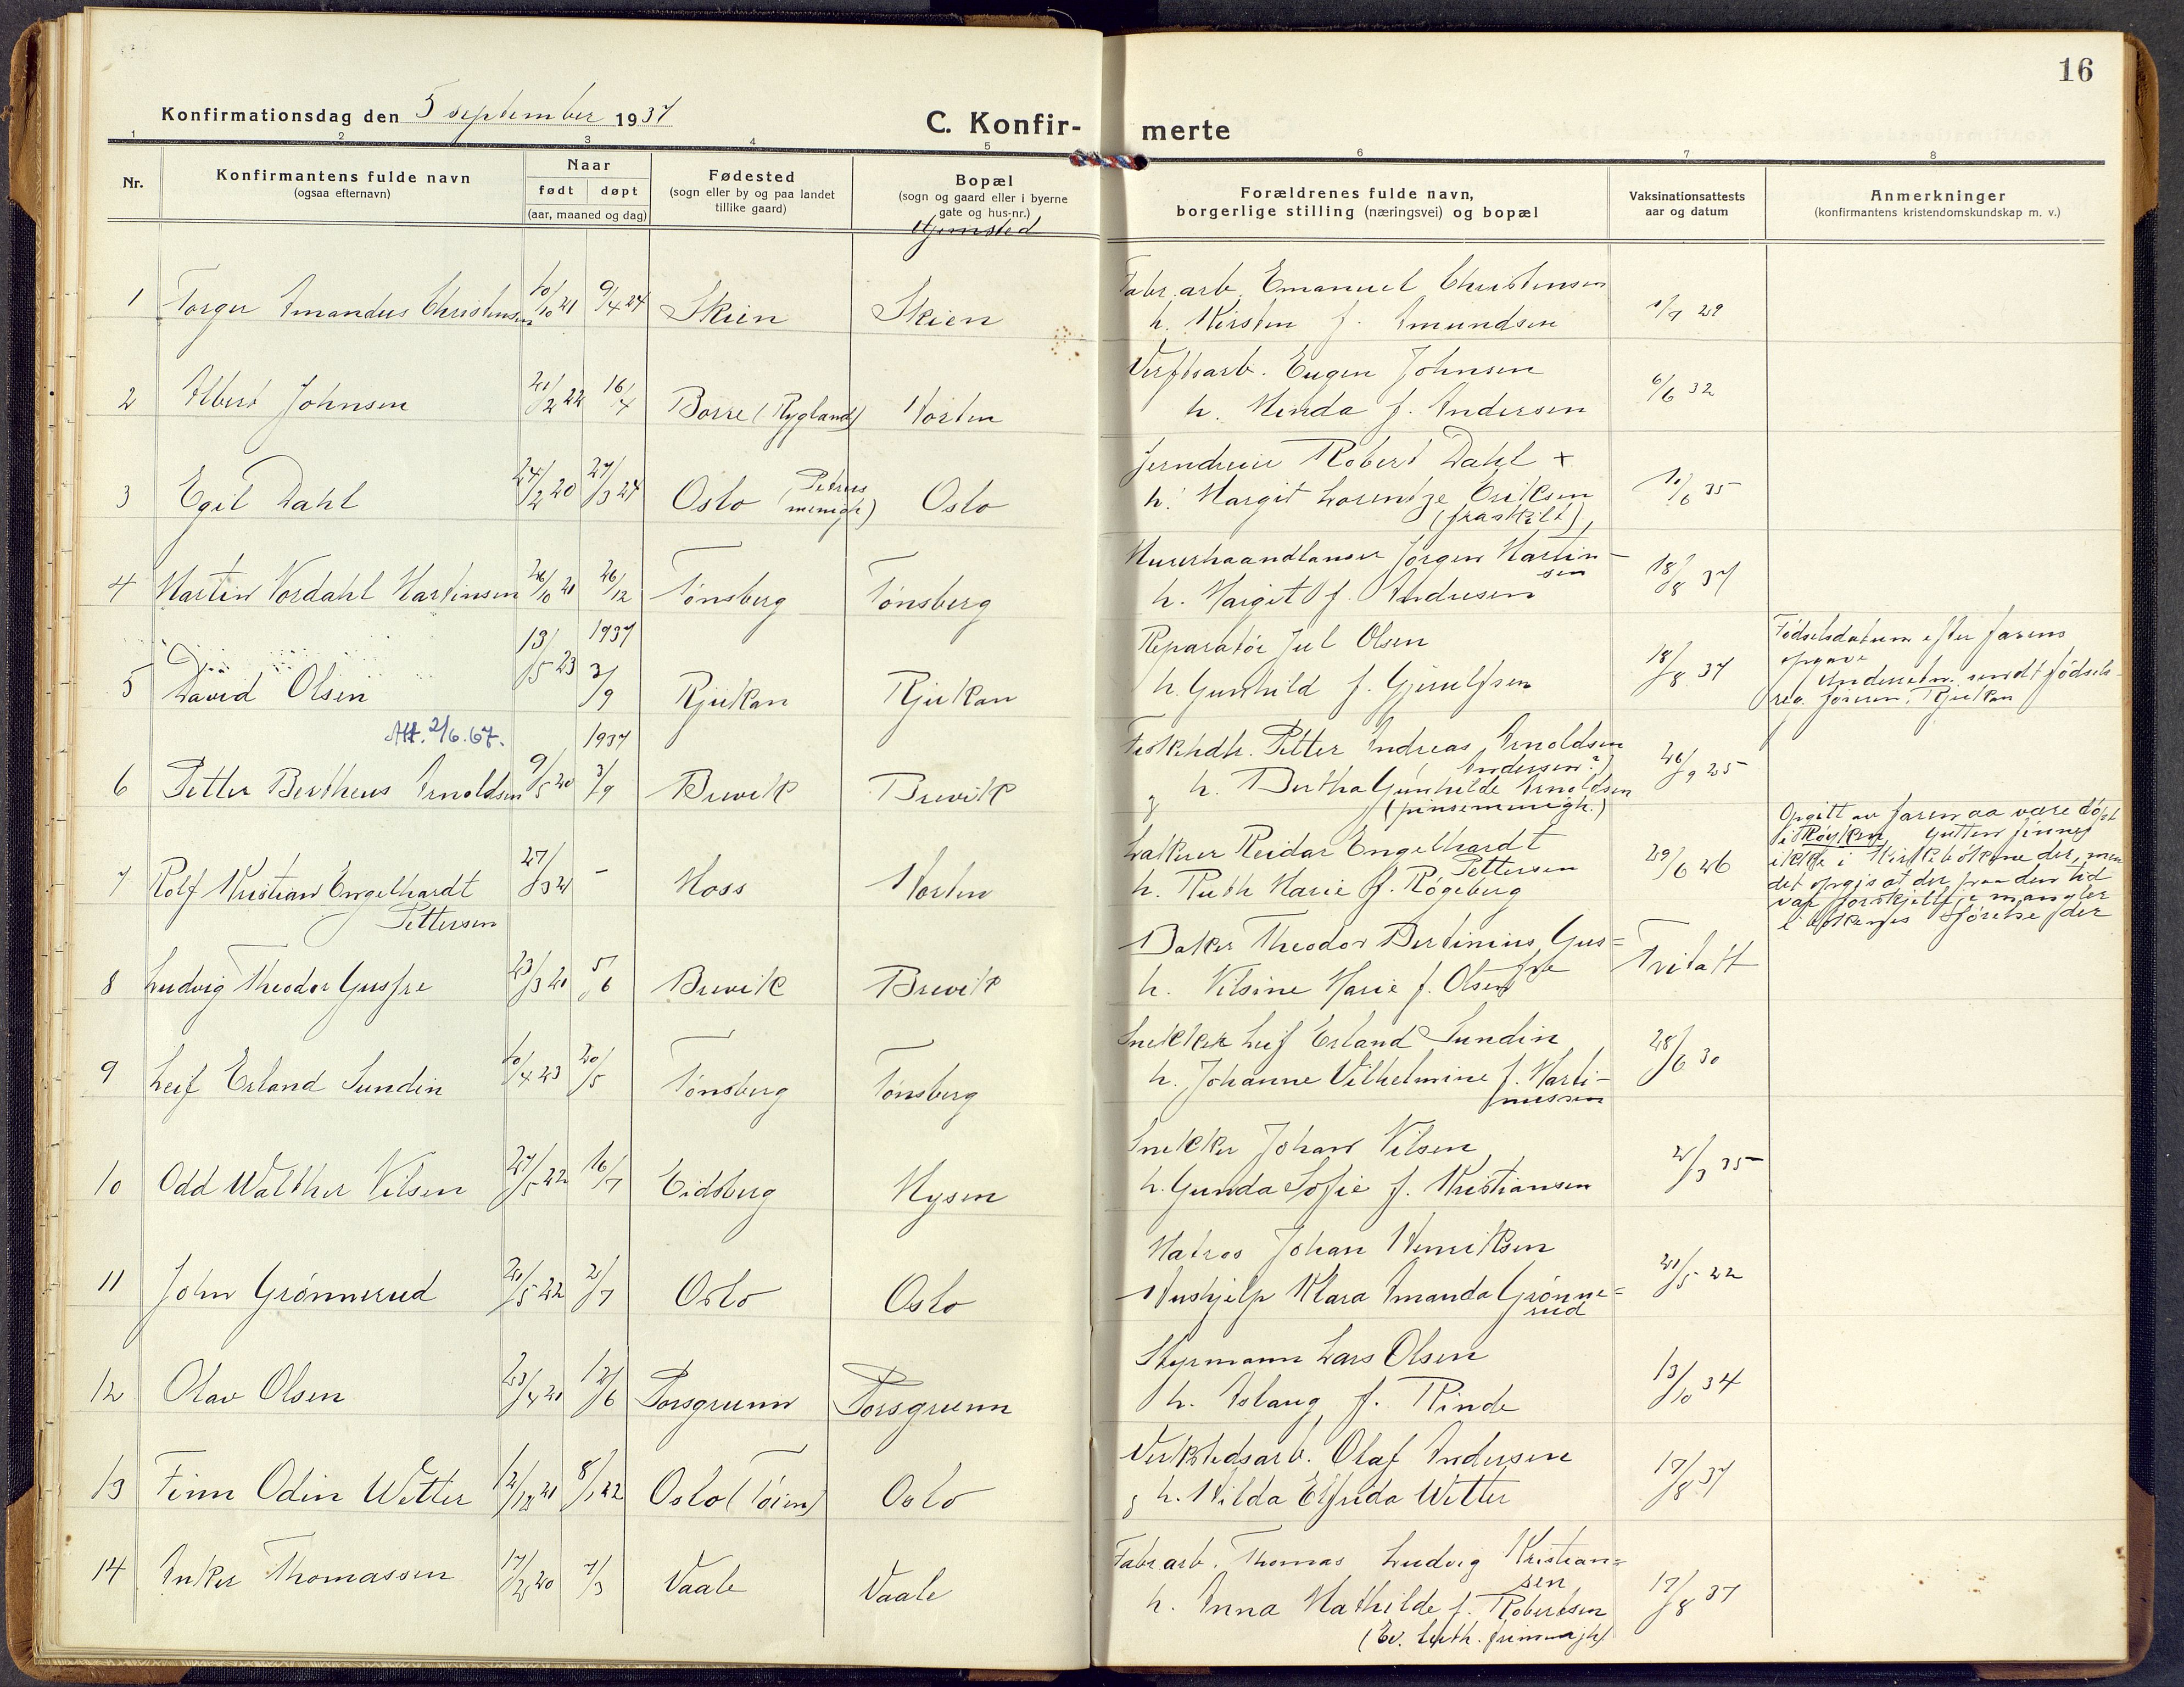 16
Konfirmationsdag den 5 september 1937
C. Konfir-
merte
1 2 3 4 5 6 7 8
Nr.
Konfirmantens fulde navn
(ogsaa efternavn)
Naar
født døpt
(aar, maaned og dag)
Fødested
(sogn eller by og paa landet
tillike gaard)
Bopæl
(sogn og gaard eller i byerne
gate og hus-nr.)
Hjemsted
Forældrenes fulde navn,
borgerlige stilling (næringsvei) og bopæl
Vaksinationsattests
aar og datum
Anmerkninger
(konfirmantens kristendomskundskap m. v.)
1 Torger Amandus Christensen 10/10 21 9/4 24 Skien Skien
Fabr.arb. Emanuel Christensen
h. Kirsten f. Amundsen
29
2 Albert Johnsen 21/2 22 16/4 Borre (Rygland) Horten
Verftsarb. Eugen Johnsen
h. Minda f. Andersen
6/6 32
3 Egil Dahl 24/2 20 27/3 24 Oslo (Petrus
menigh) Oslo
Jerndreier Robert Dahl +
h. Margit Lorentze Eriksen
(fraskilt)
35
4 Martin Nordahl Martinsen 26/10 21 26/12 Tønsberg Tønsberg
Murerhaandlanger Jørgen Martin-
sen
h. Margit f. Andresen
18/8 37
5 David Olsen 13/5 23 1937
3/9 Rjukan Rjukan
Reparatør Jul Olsen
h. Gunhild f. Gjerulfsen
18/8 37
Fødselsdatum efter farens
opgave
Anderetn. sendt fødsels-
reg.føreren, Rjukan
Att. 2/6.67.
6 Petter Bertheus Arnoldsen 9/5 20 1937
3/9 Brevik Brevik
Fiskehdl. Petter Andreas Arnoldsen
Andersen?)
g h. Bertha Gunhilde Arnoldsen
(pinsemenigh.)
26/9 25
7 Rolf Kristian Engelhardt
Pettersen 27/3 21 - Moss Horten
Lakerer Reidar Engelhardt
Pettersen
h. Ruth Marie f. Røgeberg
29/6 26
Opgitt av faren aa være døpt
i Røyken Gutten finnes
ikke i Kirkebøkene der, men
det opgis at der fra den tid
var forskjellige mangler
i bøkenes førelse der
8 Ludvig Theodor Gusfre 23/3 21 5/6 Brevik Brevik
Baker Theodor Bertinius Gus=
fre
h. Nilsine Marie f. Olsen
Fritatt
9 Leif Erland Sundin 10/4 23 20/5 Tønsberg Tønsberg
Snekker Leif Erland Sundin
h. Johanne Vilhelmine f. Marti-
niussen
28/6 30
10 Odd Walther Nilsen 27/5 22 16/7 Eidsberg Mysen
Snekker Johan Nilsen
h. Gunda Sofie f. Kristiansen
2/3 35
11 John Grønnerud 21/5 22 2/7 Oslo Oslo
Matros Johan Henriksen
Hushjelp Klara Amanda Grønne=
rud
21/5 22
12 Olav Olsen 23/4 21 12/6 Porsgrunn Porsgrunn
Styrmann Lars Olsen
h. Aslaug f. Rinde
13/10 34
13 Finn Odin Wetter 12/12 21 8/1 22 Oslo (Tøien) Oslo
Verkstedsarb. Olaf Andersen
g h. Hilda Elfrida Wetter
17/8 37
14 Anker Thomassen 17/2 20 7/3 Vaale Vaale
Fabr.arb. Thomas Ludvig Kristian=
sen
h. Anna Mathilde f. Robertsen
(Ev. luth. frimenigh)
17/8 37